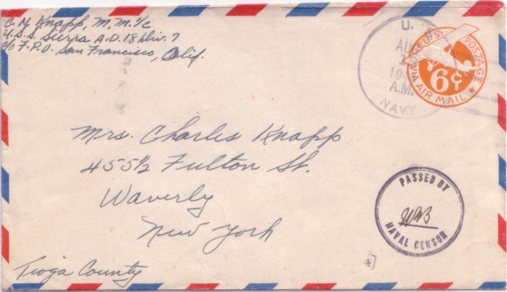 C. M. Knapp, M.M. 1/c
U.S.S. Sierra A.D. 18 Div. 7
c/o F.P.O. San Francisco, Calif.
U.
AU
19
A.M.
NAVY
U.S. POSTAGE
6¢
VIA AIR MAIL
Mrs. Charles Knapp
455½ Fulton St.
Waverly
New York
Tioga County
PASSED BY
NAVAL CENSOR